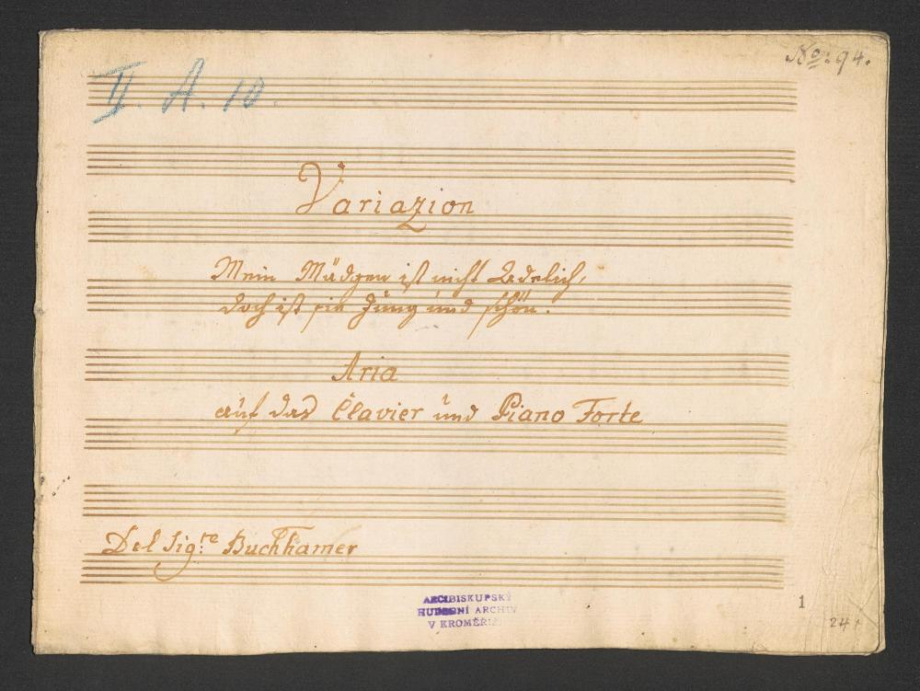 No: 94.
II. A. 10.
Variazion
Mein Mädgen ist nicht Adelich,
doch ist sie Jung und schön.
Aria
auf das Clavier und Piano Forte
Del Sig:re Buchhamer
ARCIBISKUPSKÝ
HUDEBNÍ ARCHIV
V KROMĚŘÍŽI
1
24